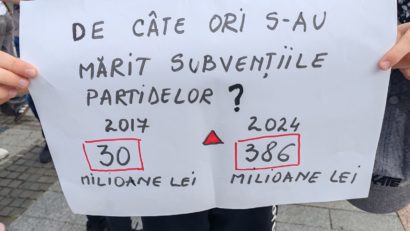 DE CÂTE ORI S-AU
MĂRIT SUBVENȚIILE
PARTIDELOR?
2017 2024
30 386
MILIOANE LEI MILIOANE LEI